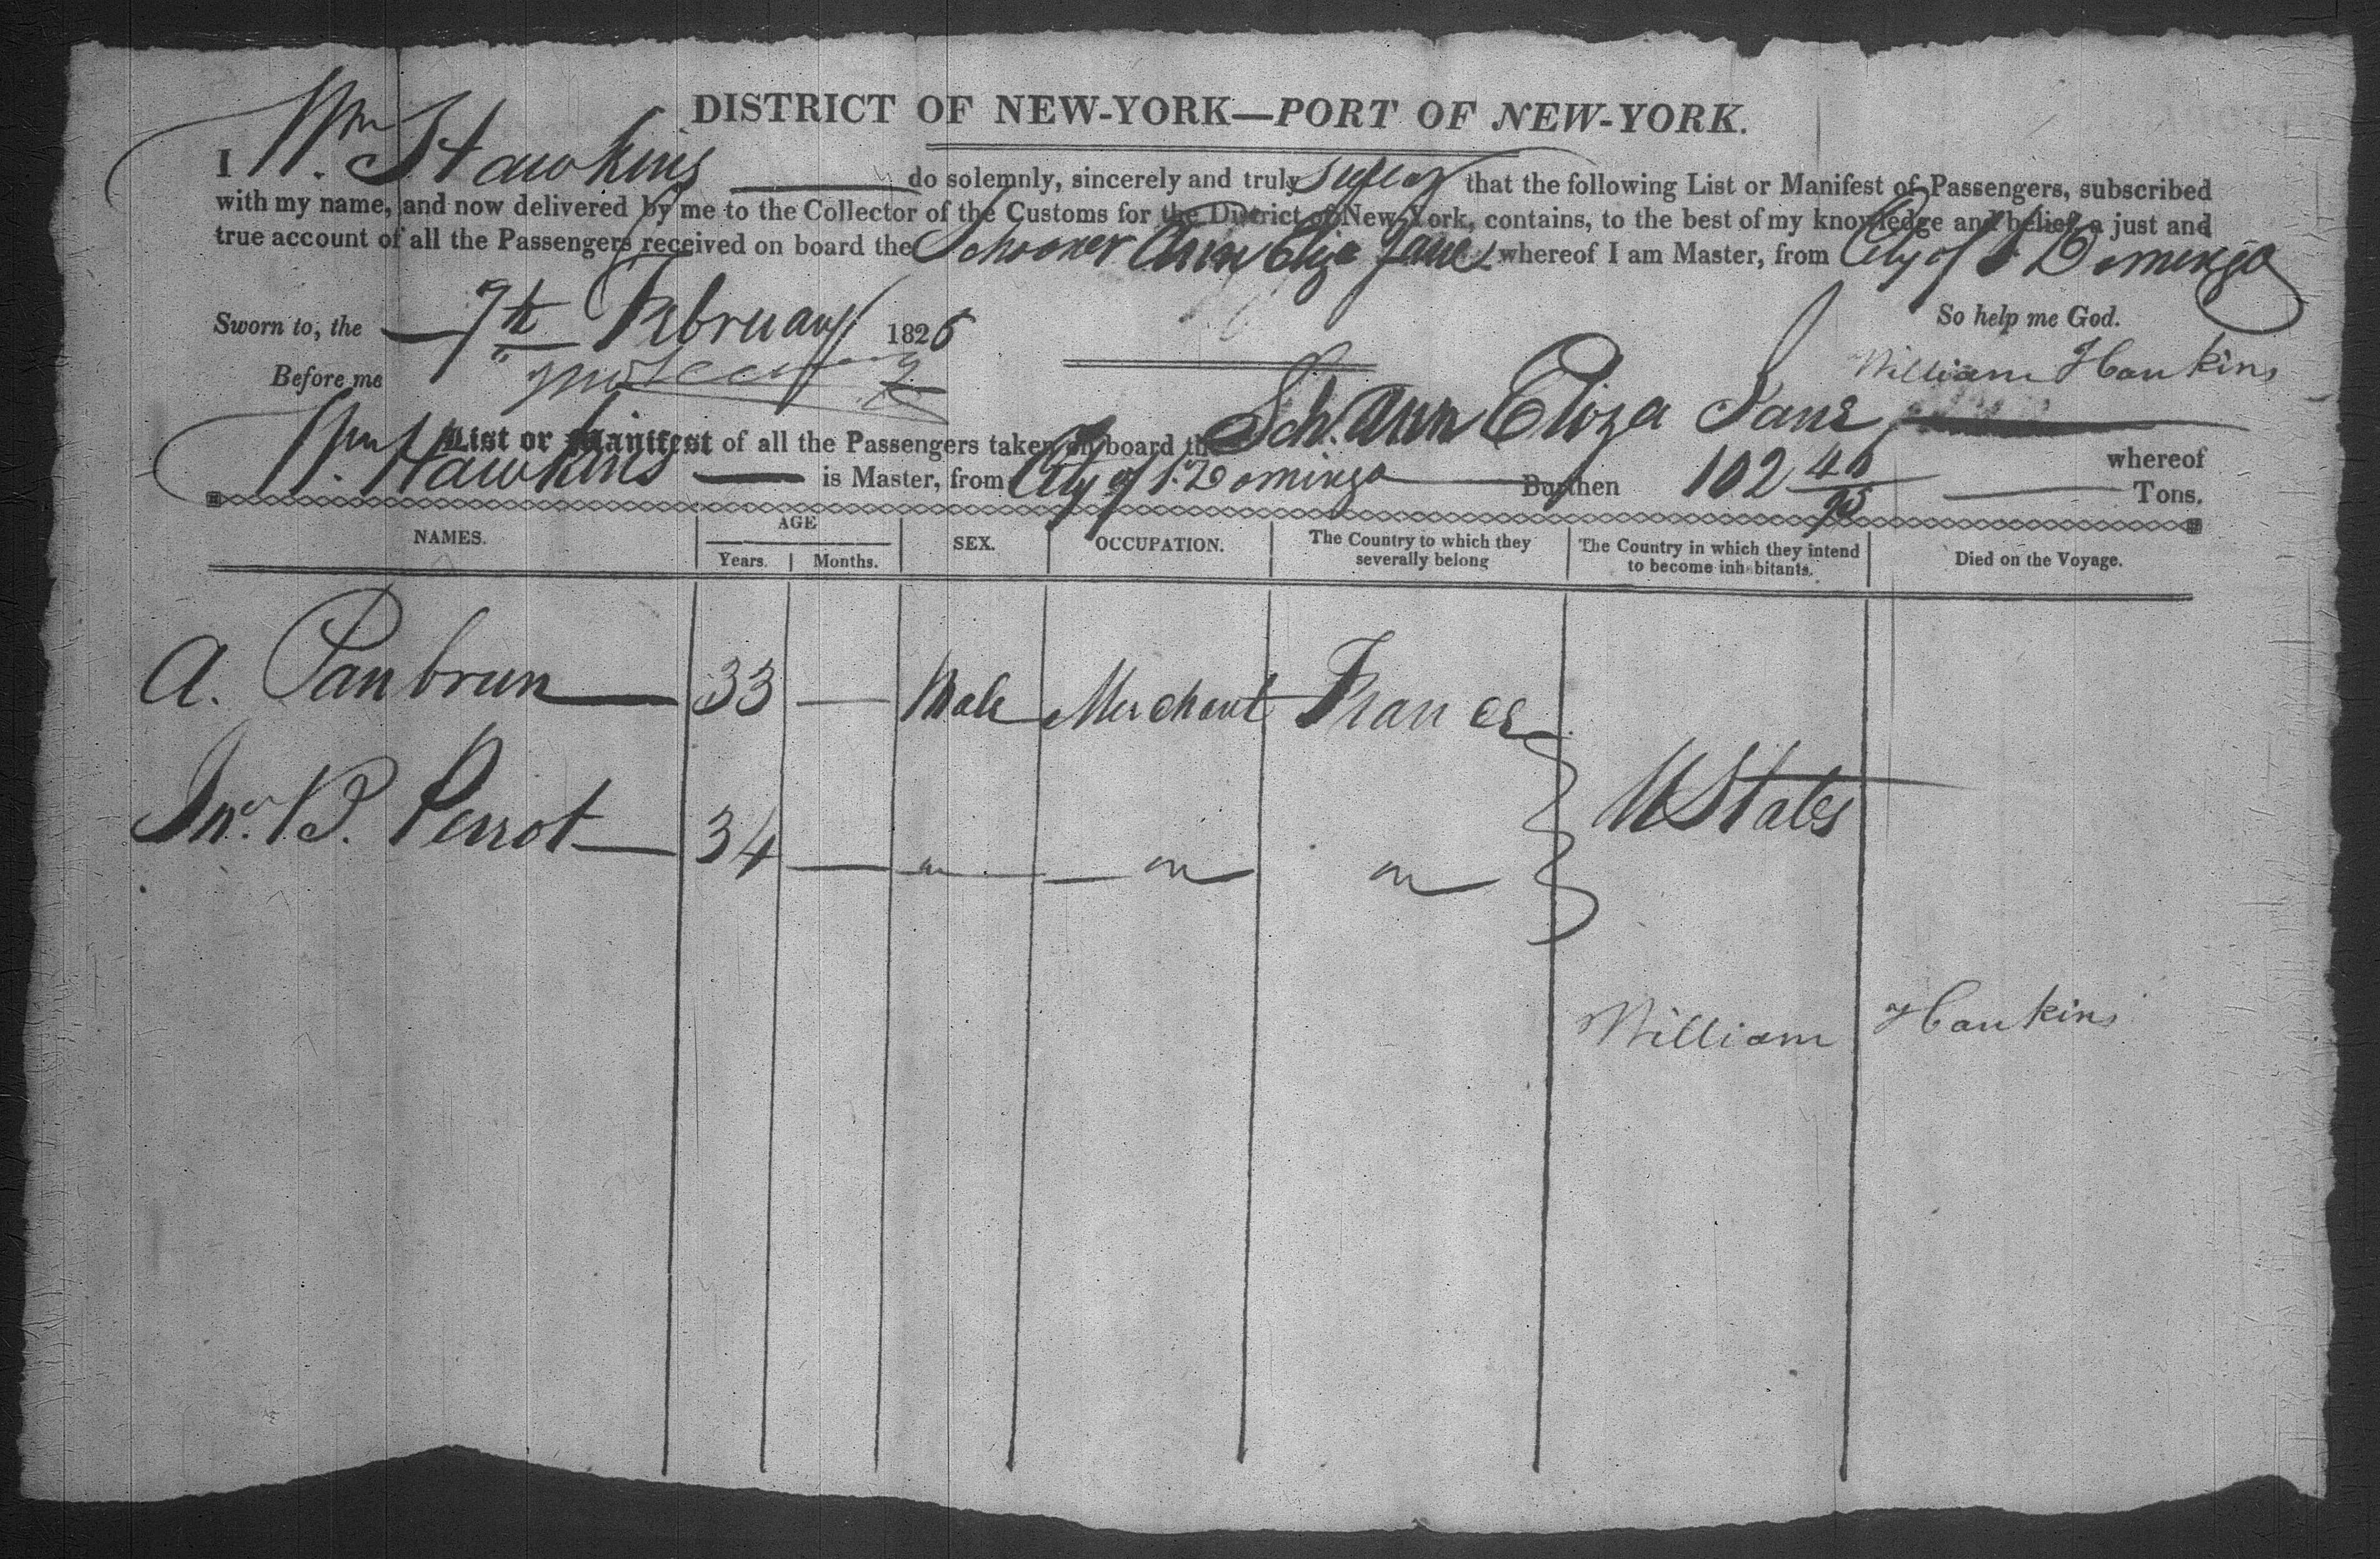 DISTRICT OF NEW-YORK—PORT OF NEW-YORK.
I Wm Hawkins do solemnly, sincerely and truly swear that the following List or Manifest of Passengers, subscribed
with my name, and now delivered by me to the Collector of the Customs for the District of New York, contains, to the best of my knowledge and belief, a just and
true account of all the Passengers received on board the Schooner Ann Eliza Jane whereof I am Master, from City of St Domingo
Sworn to, the 7th February 1826 So help me God.
Before me William Hawkins
List or Manifest of all the Passengers taken on board the Sch. Ann Eliza Jane whereof
Wm Hawkins is Master, from City of St Domingo Burthen 102 46/95 Tons.
NAMES. AGE Years. Months. SEX. OCCUPATION. The Country to which they severally belong The Country in which they intend to become inhabitants. Died on the Voyage.
A. Panbrun 33 — Male Merchant France
U States
Jno. B. Perrot 34 — " " "
William Hawkins